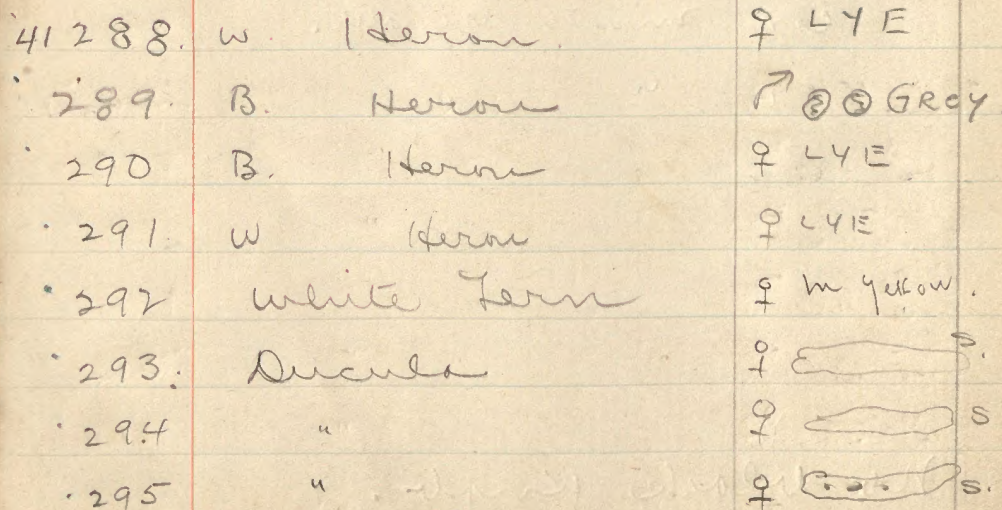 41288. W Heron. ♀ LYE
289. B. Heron ♂ GREY
290 B. Heron ♀ LYE
291. W Heron ♀ LYE
292 White Tern ♀ m yellow.
293. Ducula ♀ S.
294 " ♀ S
295 " ♀ S.